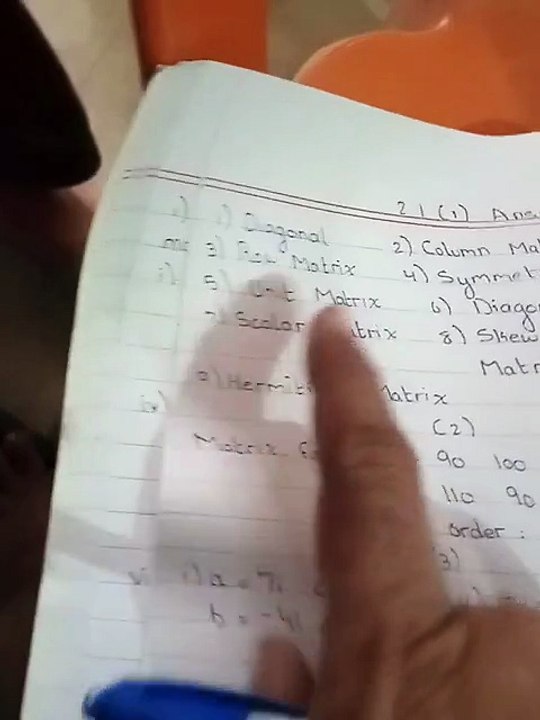 2.1 (1) Ans
i) 1) Diagonal 2) Column Ma
3) Row Matrix 4) Symmet
5) Unit Matrix 6) Diago
7) Scalar trix 8) Skew
Matr
9) Hermiti Matrix
(2)
Matrix 90 100
110 90
order :
(3)
vi i) a = 7,
b = -4